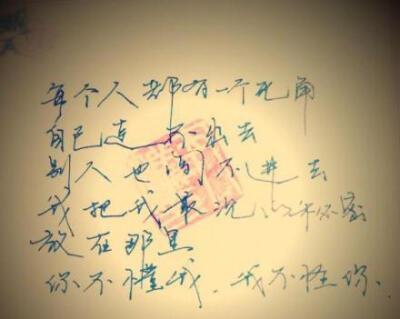 每个人都有一个死角
自己走不出去
别人也闯不进去
我把我最
放在那里
你不懂我，我不怪你.